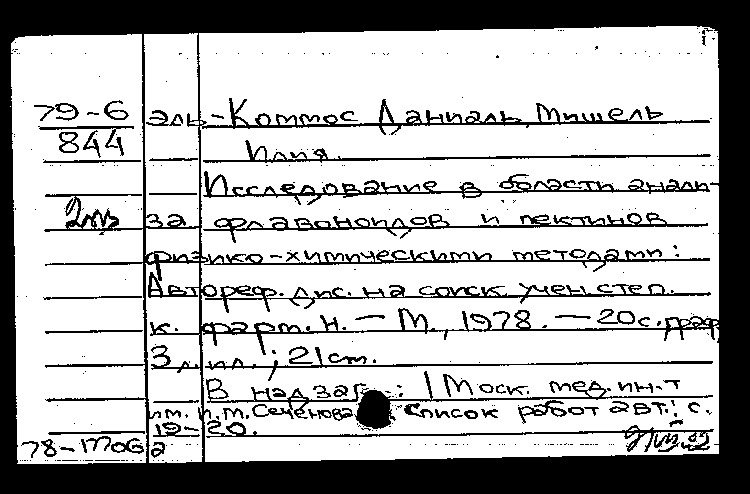 79-6 аль-Коммос Даниаль Мишель
844 Илия.
Исследование в области анали-
2пп за флавоноидов и пектинов
физико-химическими методами:
Автореф. дис. на соиск. учен. степ.
к. фарм. н. — М., 1978. — 20 с. граф.
3 л. ил.; 21 см.
В надзаг.: 1 Моск. мед. ин-т
им. И.М. Сеченова. Список работ авт.: с.
19-20.
78-17706 а